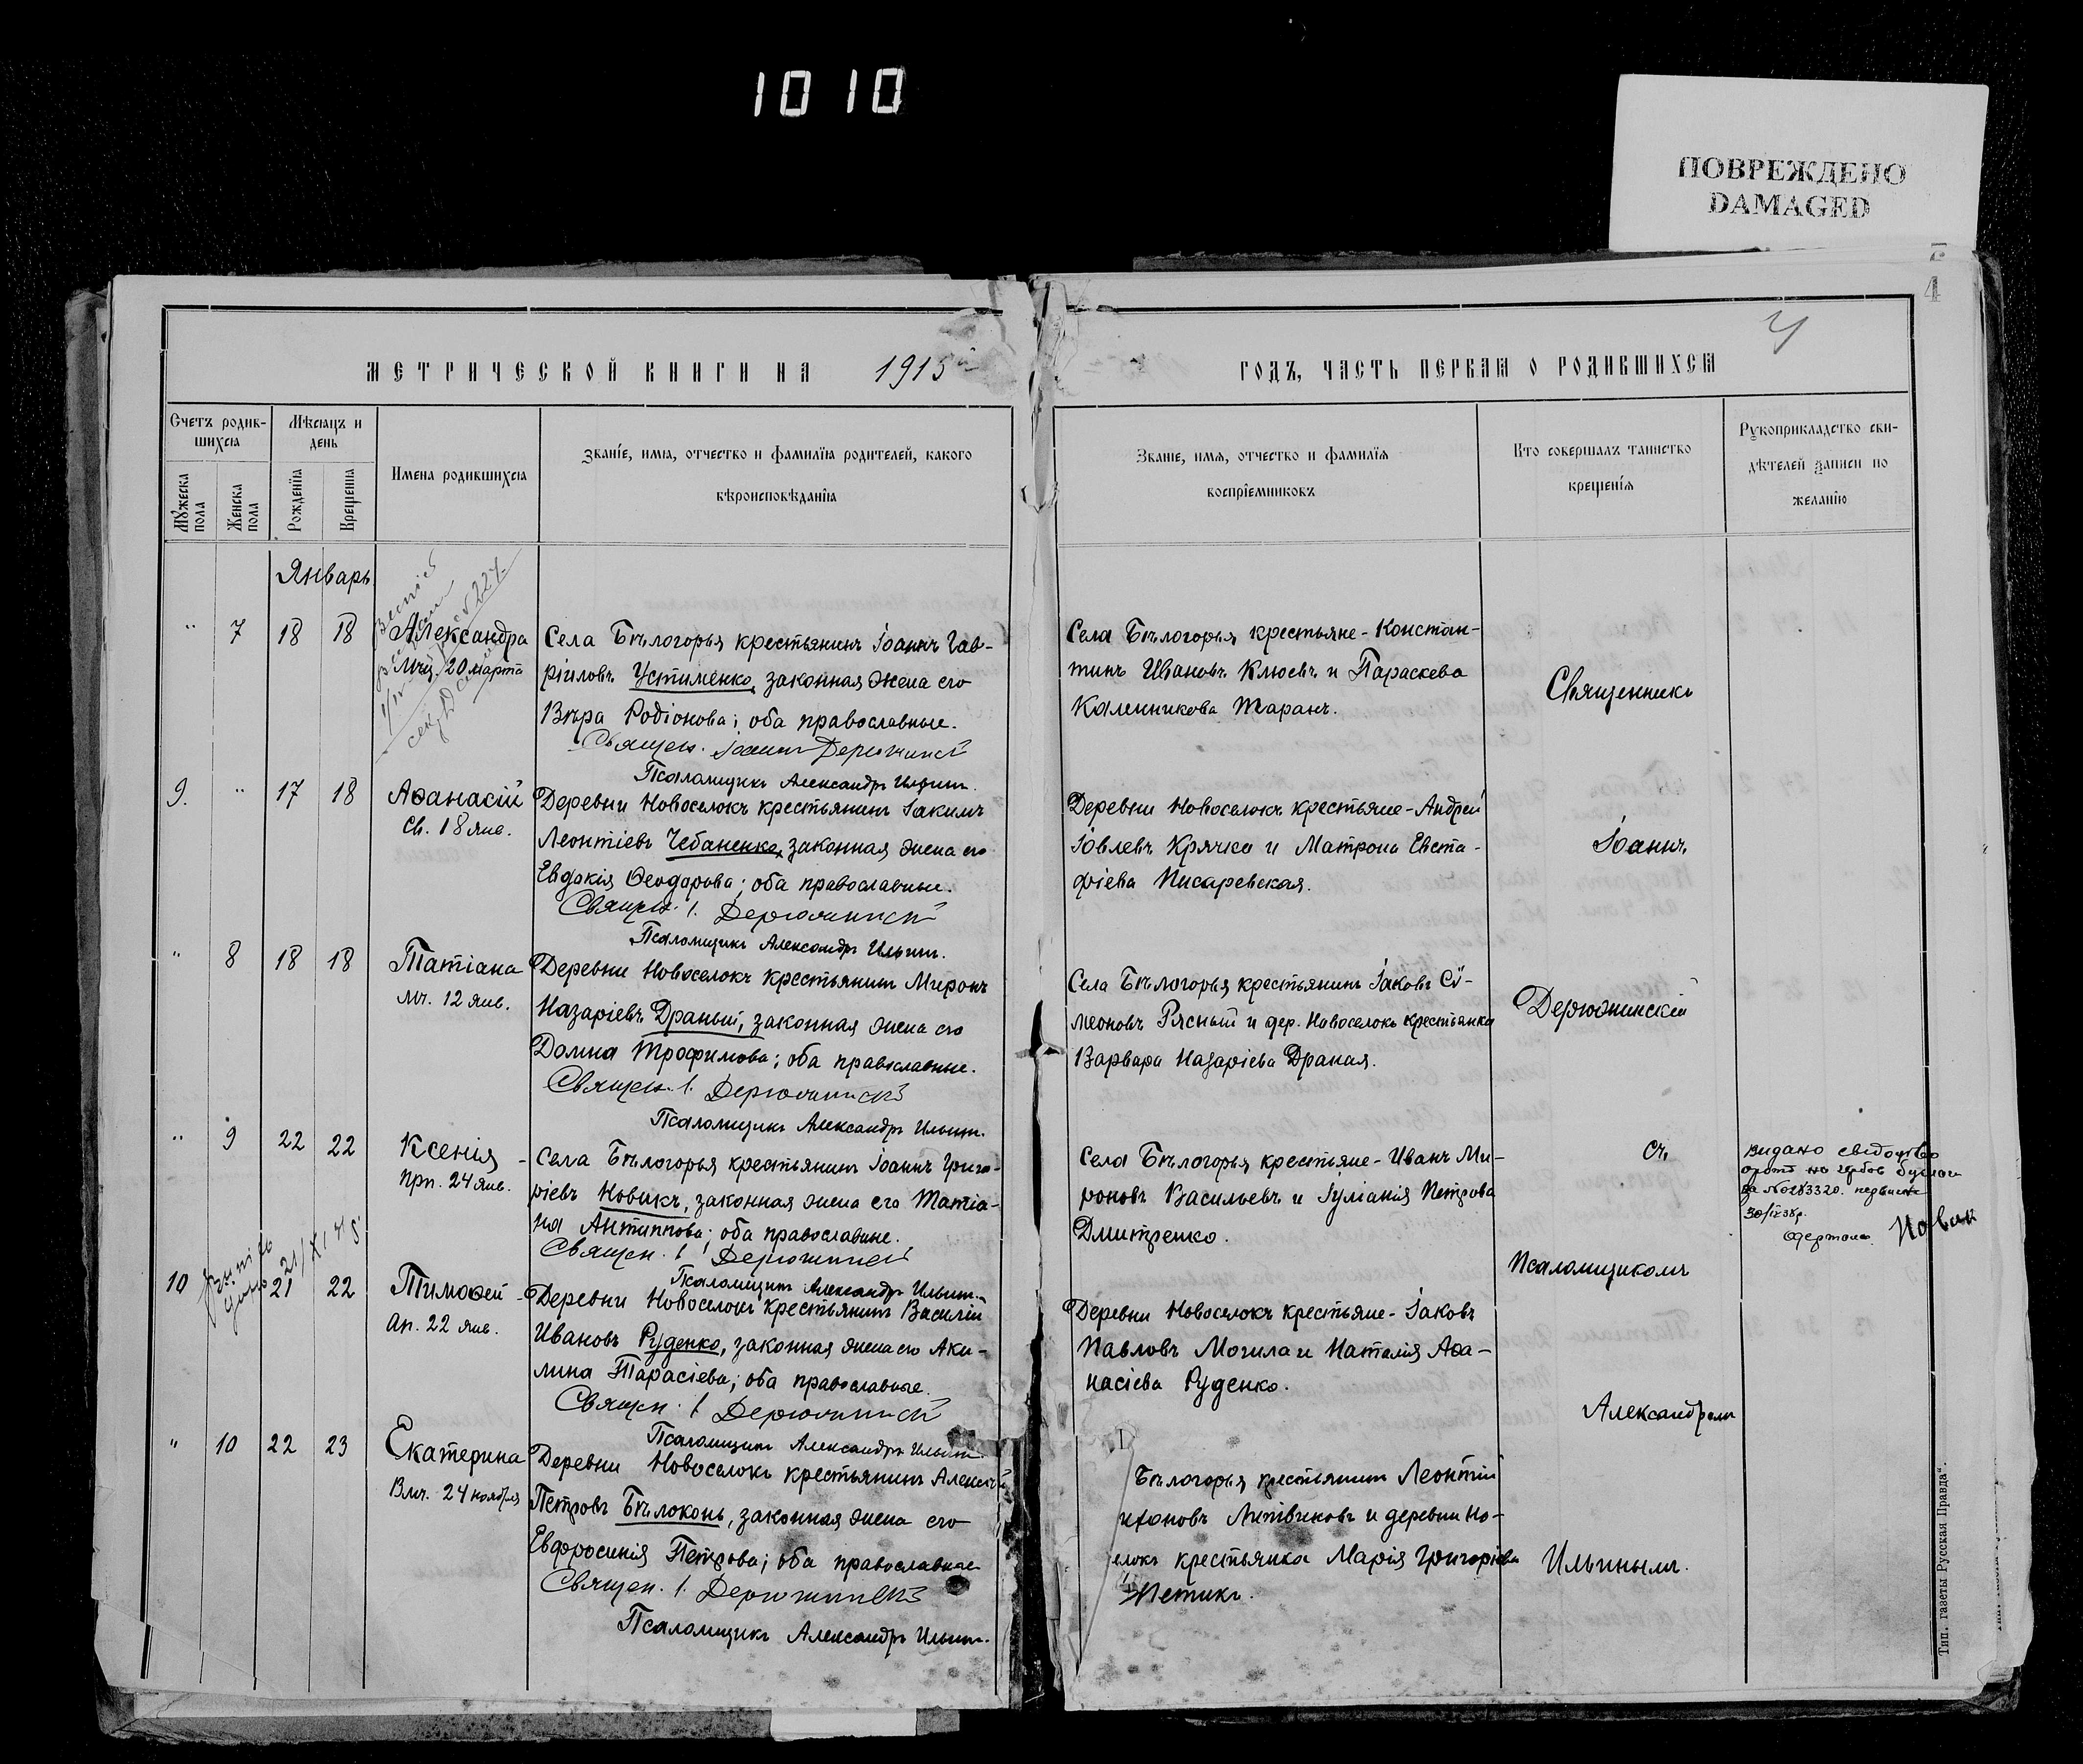 1010
ПОВРЕЖДЕНО
DAMAGED
4
4
МЕТРИЧЕСКОЙ КНИГИ НА 1915
Счетъ родив-
шихся
Мѣсяцъ и
день
Мужеска
пола
Женска
пола
Рожденїя
Крещенїя
Имена родившихся
Званїе, имя, отчество и фамилїя родителей, какого
вѣроисповѣданїя
Январь
" 7 18 18 Александра
Мчц. 20 марта
Села Бѣлогорья крестьянинъ Іоаннъ Гав-
ріиловъ Устименко, законная жена его
Вѣра Родіонова; оба православные.
Священ. Іоаннъ Дерюжинскій
Псаломщикъ Александръ Ильинъ.
9. " 17 18 Аѳанасій
Св. 18 янв.
Деревни Новоселокъ крестьянинъ Іакимъ
Леонтіевъ Чебаненко, законная жена его
Евдокія Ѳеодорова; оба православные.
Священ. І. Дерюжинскій
Псаломщикъ Александръ Ильинъ.
" 8 18 18 Татіана
Мч. 12 янв.
Деревни Новоселокъ крестьянинъ Миронъ
Назаріевъ Драный, законная жена его
Домна Трофимова; оба православные.
Священ. І. Дерюжинскій
Псаломщикъ Александръ Ильинъ.
" 9 22 22 Ксенія
Прп. 24 янв.
Села Бѣлогорья крестьянинъ Іоаннъ Григо-
ріевъ Новикъ, законная жена его Татіа-
на Антиппова; оба православные.
Священ. І. Дерюжинскій
Псаломщикъ Александръ Ильинъ.
10 21 22 Тимоѳей
Ап. 22 янв.
Деревни Новоселокъ крестьянинъ Василій
Ивановъ Руденко, законная жена его Аки-
лина Тарасіева; оба православные.
Священ. І. Дерюжинскій
Псаломщикъ Александръ Ильинъ.
" 10 22 23 Екатерина
Вмч. 24 ноября
Деревни Новоселокъ крестьянинъ Алексѣй
Петровъ Бѣлоконь, законная жена его
Евфросинія Петрова; оба православные
Священ. І. Дерюжинскій
Псаломщикъ Александръ Ильинъ.
ГОДЪ, ЧАСТЬ ПЕРВАЯ О РОДИВШИХСЯ
Званїе, имя, отчество и фамилїя
воспрїемниковъ
Кто совершалъ таинство
крещенїя
Рукоприкладство сви-
дѣтелей записи по
желанїю
Села Бѣлогорья крестьяне - Констан-
тинъ Ивановъ Клюевъ и Параскева
Калинникова Таранъ.
Деревни Новоселокъ крестьяне - Андрей
Іовлевъ Крячко и Матрона Евста-
фіева Писаревская.
Села Бѣлогорья крестьянинъ Іаковъ Сѵ-
меоновъ Рясный и дер. Новоселокъ крестьянка
Варвара Назаріева Драная.
Села Бѣлогорья крестьяне - Иванъ Ми-
роновъ Васильевъ и Іуліанія Петрова
Дмитренко.
Деревни Новоселокъ крестьяне - Іаковъ
Павловъ Могила и Наталія Аѳа-
насіева Руденко.
Бѣлогорья крестьянинъ Леонтій
Литвиновъ и деревни Но-
елокъ крестьянка Марія Григоріева
Священникъ
Іоаннъ
Дерюжинскій
съ
Псаломщикомъ
Александромъ
Ильинымъ.
видано свидоцтво
Новик
Тип. газеты „Русская Правда“.